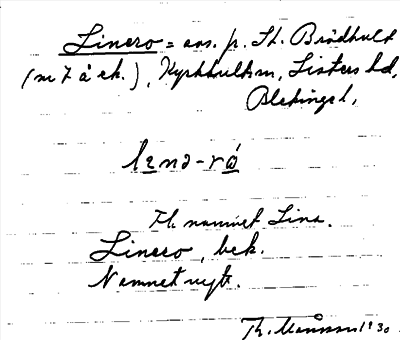 Linero = avs. p. St. Brödhult
(nr 7 å ek.), Kyrkhults sn, Listers hd,
Blekinge l,
lena-rå
Till namnet Lina.
Linero, bek.
Namnet nytt.
Th. Månsson 1930